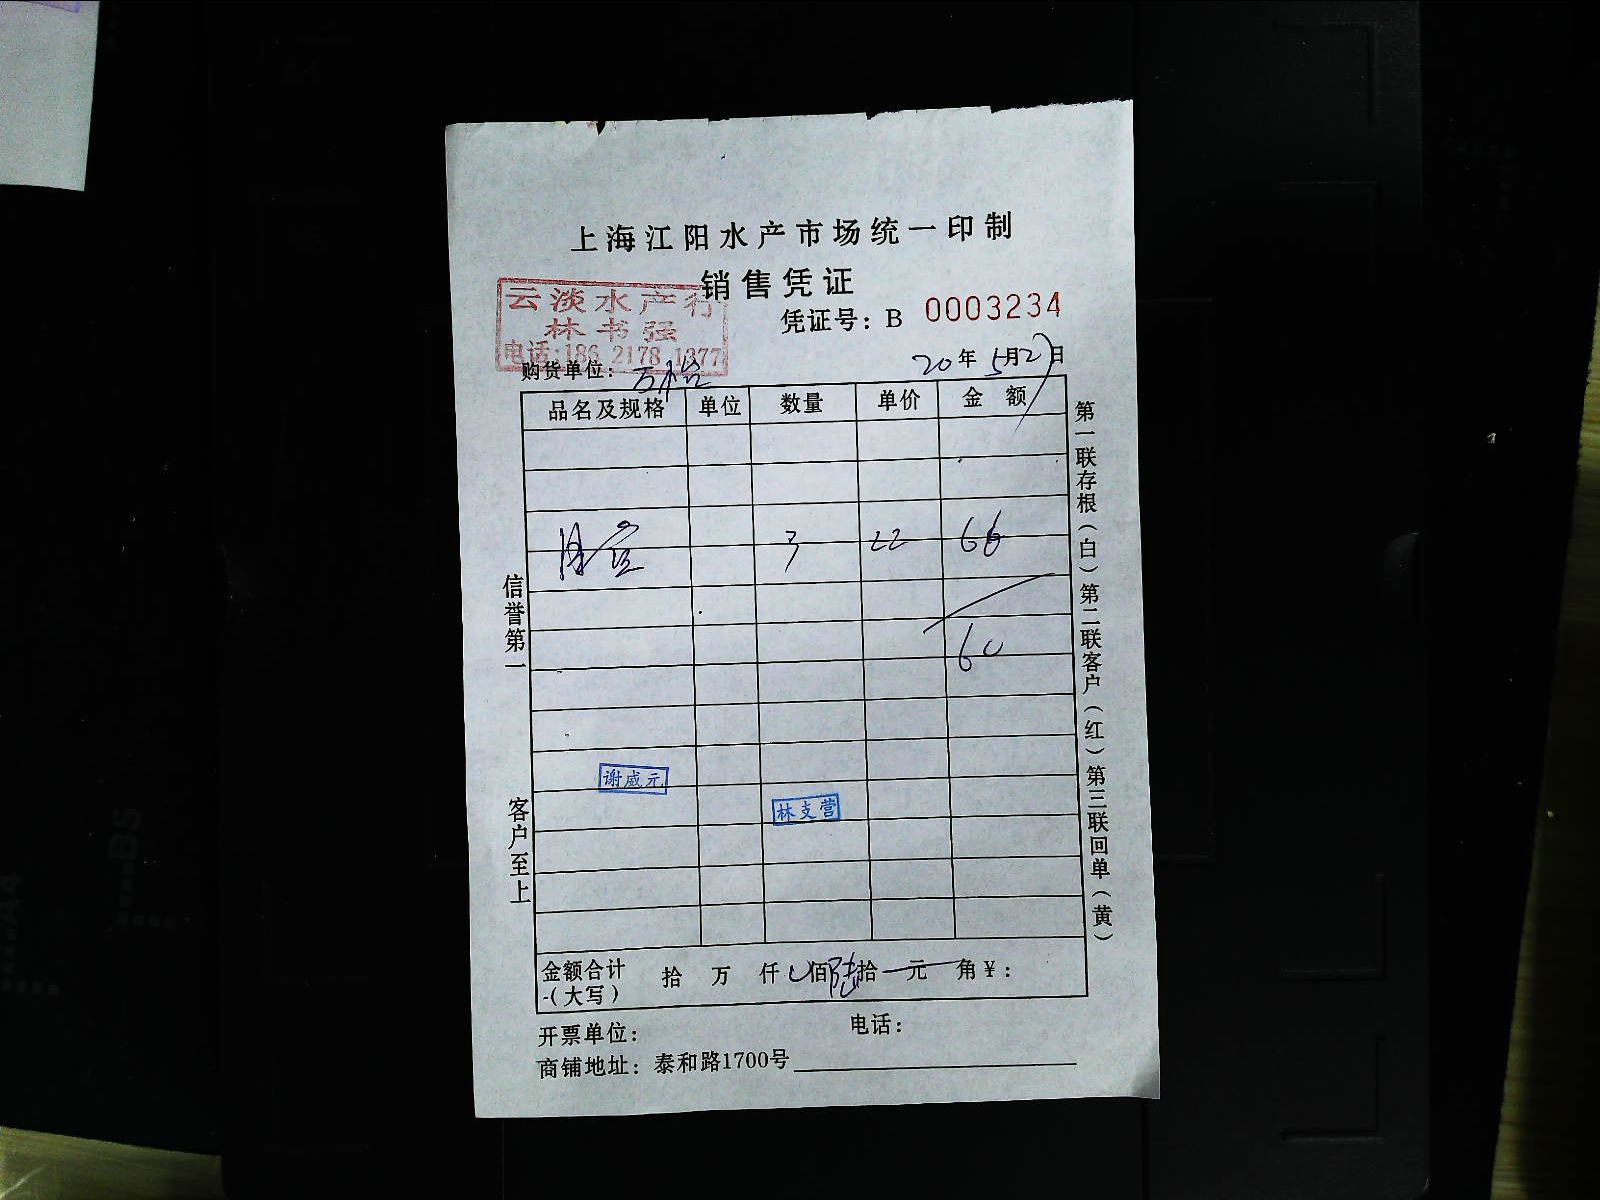 上海江阳水产市场统一印制
销售凭证
云淡水产行
林书强
电话:186 2178 1377
凭证号：B 0003234
购货单位：万裕
20年5月27日
品名及规格 单位 数量 单价 金额
3 22 66
60
谢威元
林支营
金额合计（大写） 拾 万 仟 佰陆拾 元 角 ¥：
开票单位： 电话：
商铺地址：泰和路1700号
信誉第一
客户至上
第一联存根（白）第二联客户（红）第三联回单（黄）
B5
A4